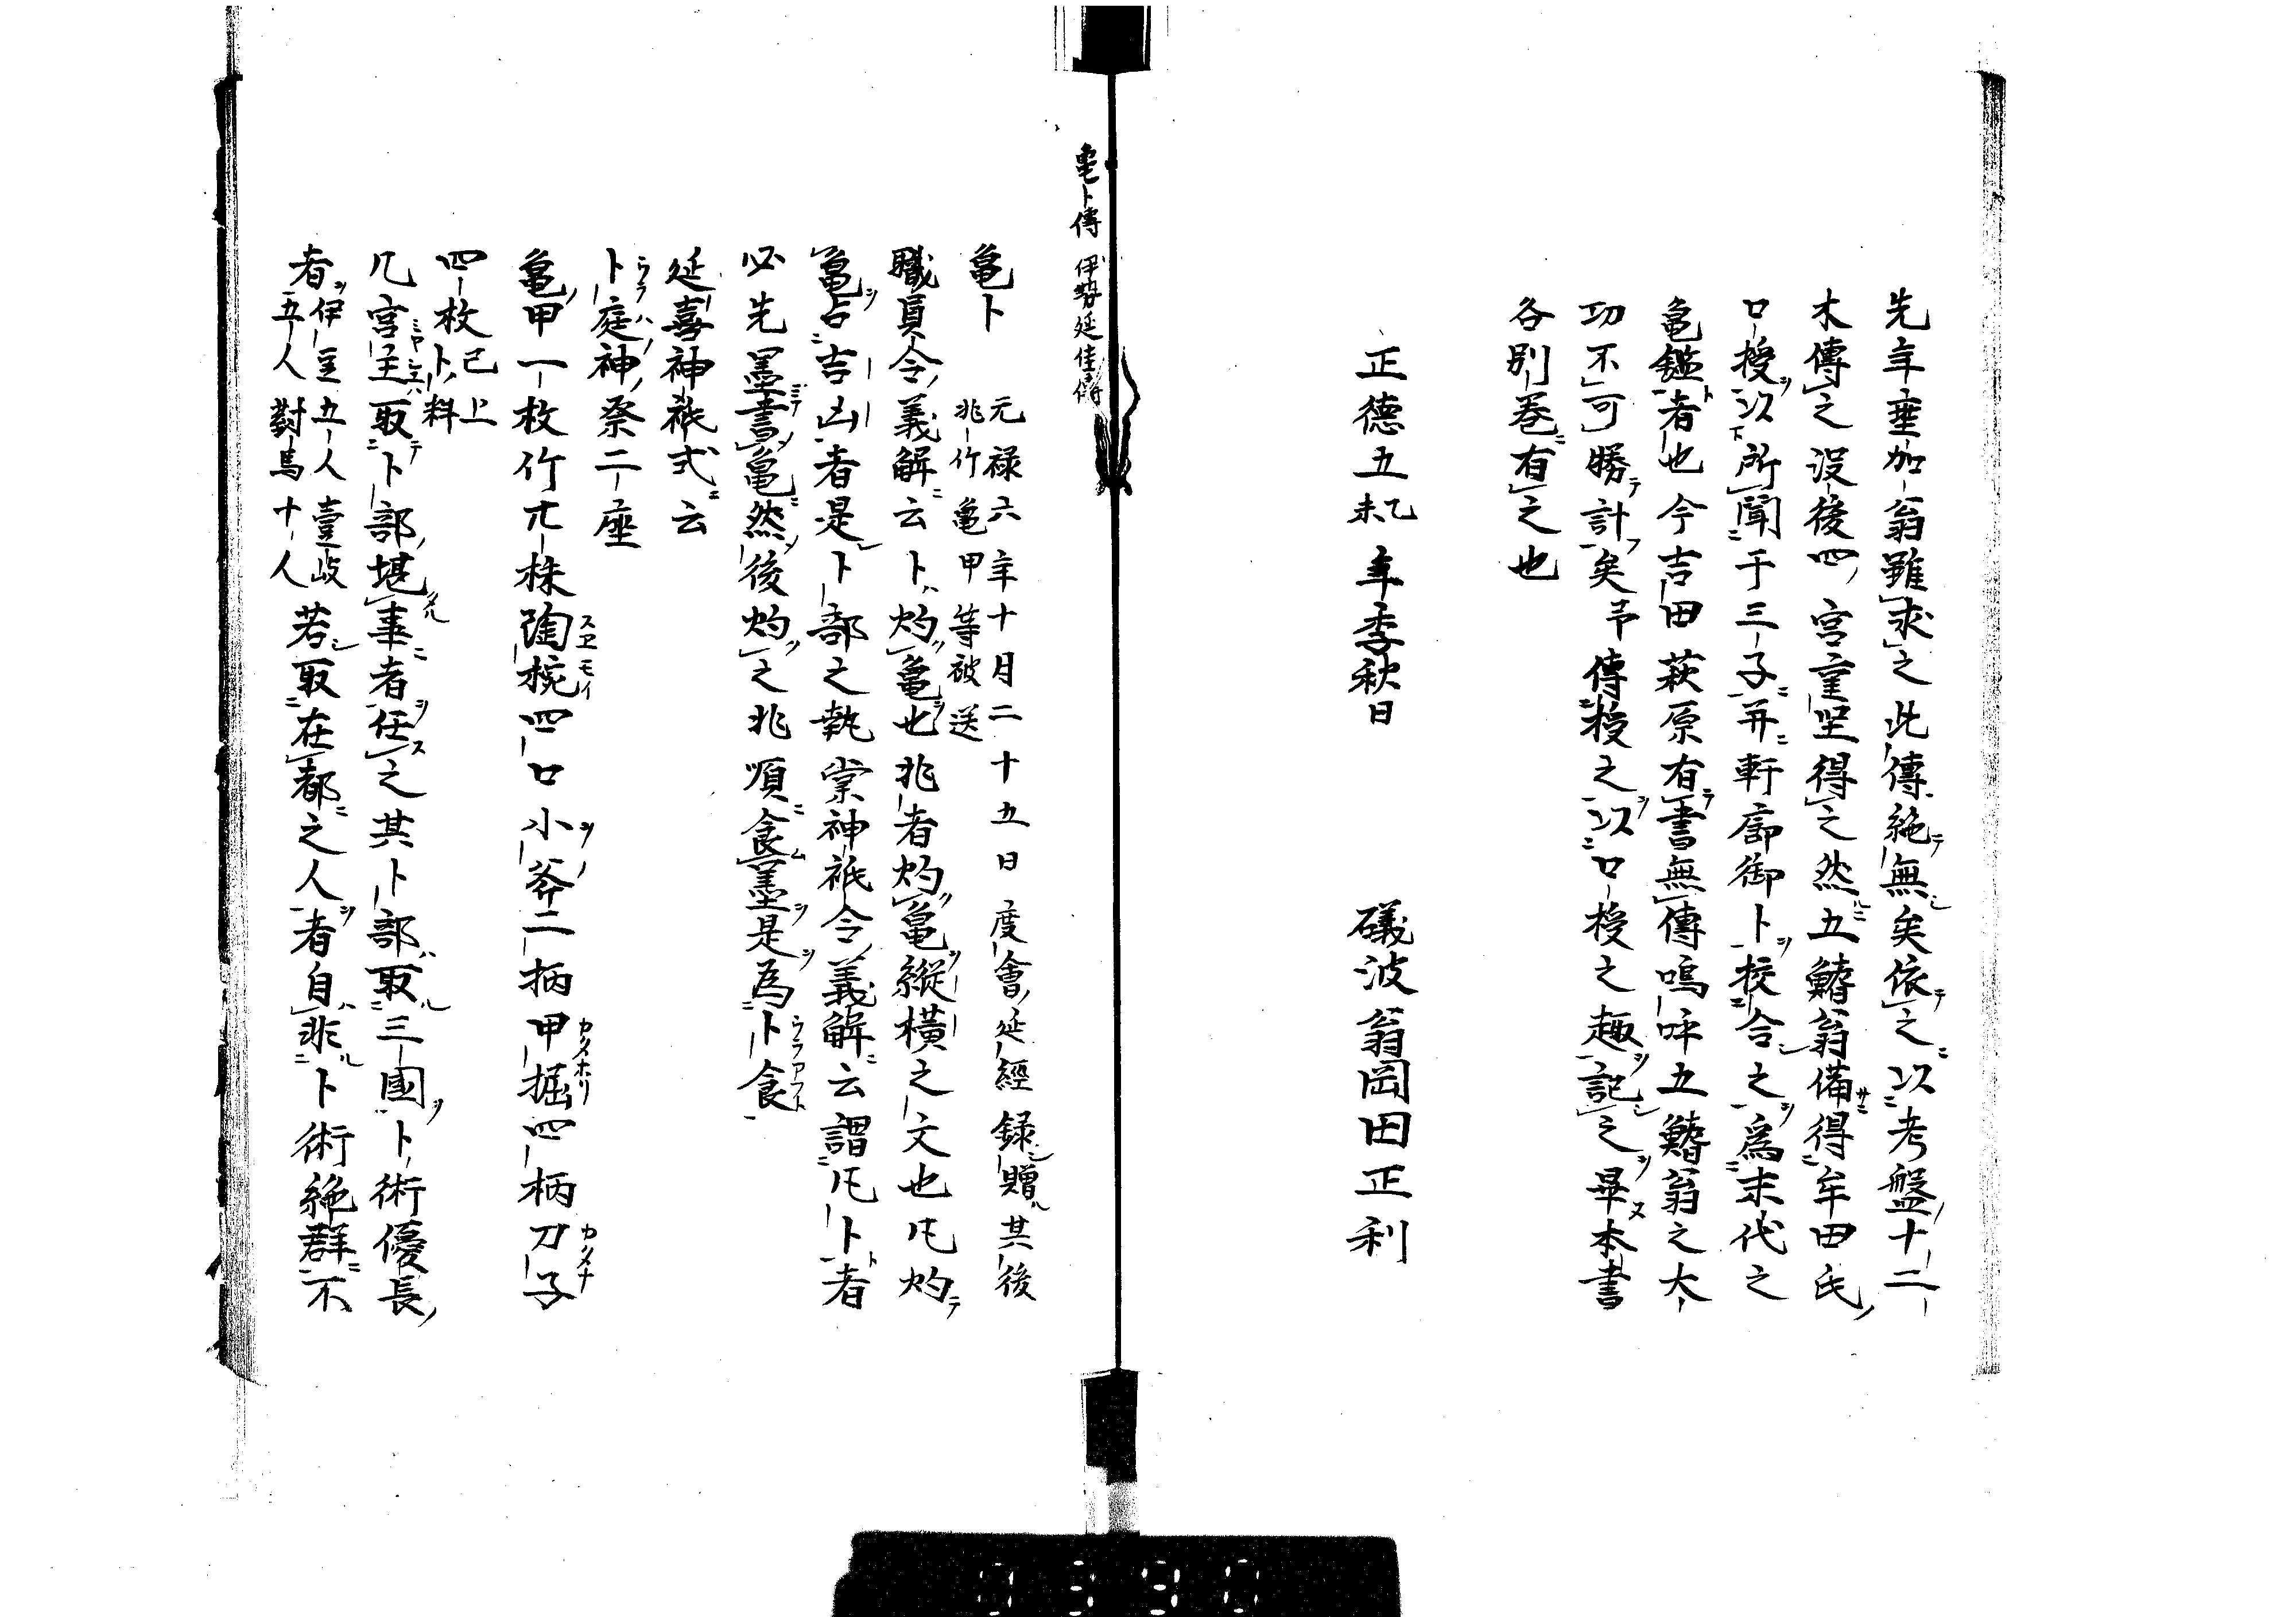 先年垂加翁雖求之此傳絶無矣依之以考盤十二
木傳之没後四宮重堅得之然五鰭翁備得牟田氏
口授以所聞于三子并軒廊御卜校合之為末代之
亀鑑者也今吉田萩原有書無傳嗚呼五鰭翁之大
功不可勝計矣予傳授之以口授之趣記之畢本書
各別巻有之也
正德五乙未年季秋日 礒波翁岡田正利
亀卜傳 伊勢延佳傳
亀卜 元禄六年十月二十五日度會延經録贈其後
兆竹亀甲等被送
職員令義解云卜灼亀也兆者灼亀縱横之文也凡灼
亀占吉凶者是卜部之執業神祇令義解云謂凡卜者
必先墨書亀然後灼之兆順食墨是為卜食
延喜神祇式云
卜庭神祭二座
亀甲一枚竹廿株陶椀四口小斧二柄甲掘四柄刀子
四枚已上卜料
凡宮主取卜部堪事者任之其卜部取三國卜術優長
者伊豆五人壹岐五人對馬十人若取在都之人者自非卜術絶群不